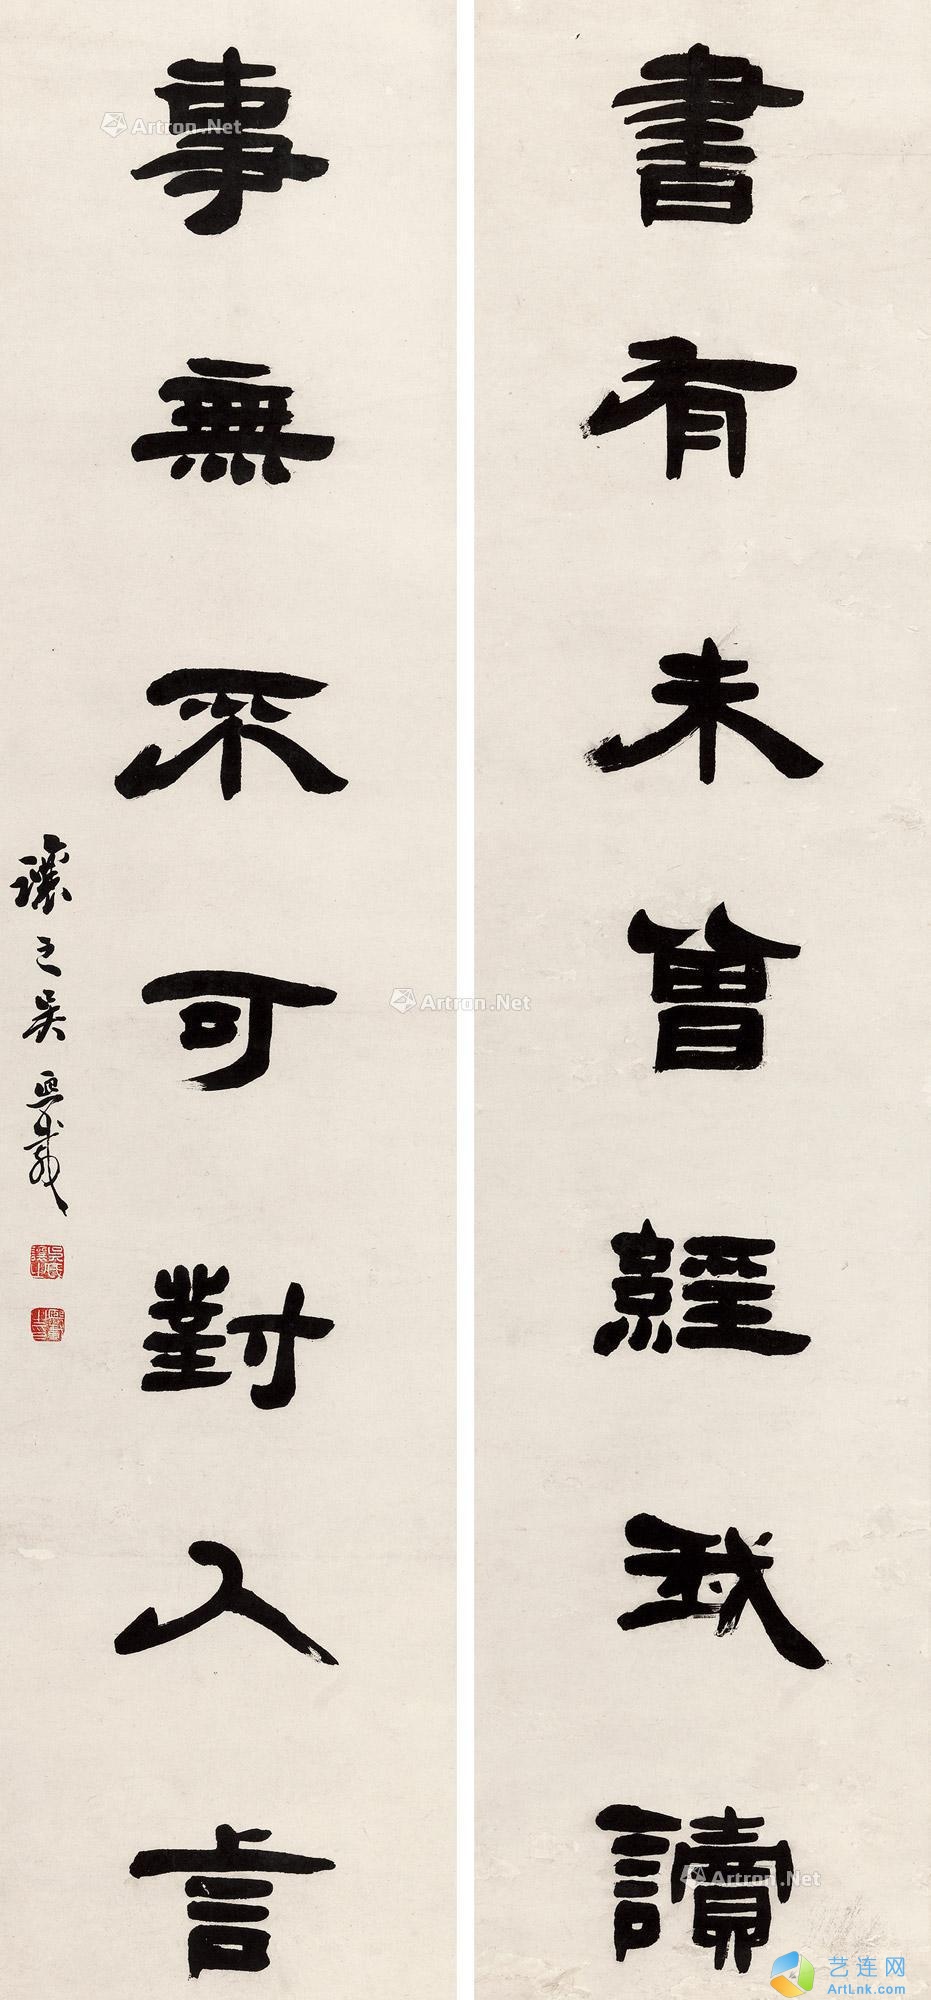 書有未曾經我讀
事無不可對人言
讓之吳熙載
吳氏讓之
Artron.Net
Artron.Net
Artron.Net
艺连网
ArtLnk.com